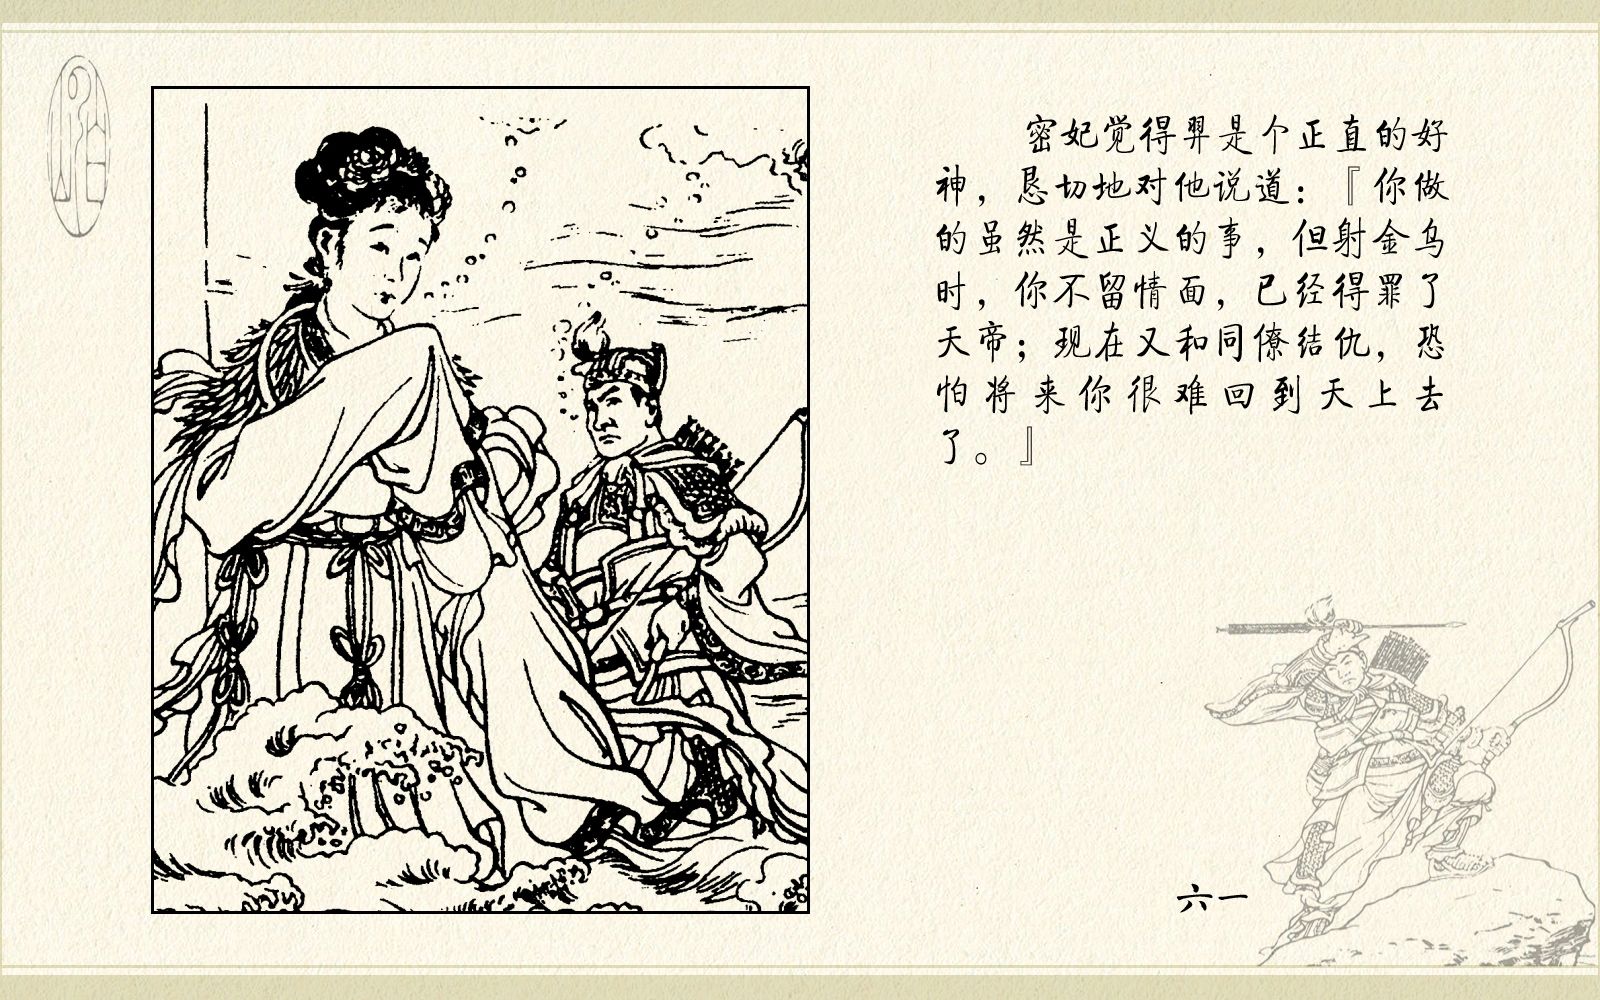 密妃觉得羿是个正直的好
神，恳切地对他说道：『你做
的虽然是正义的事，但射金乌
时，你不留情面，已经得罪了
天帝；现在又和同僚结仇，恐
怕将来你很难回到天上去
了。』
六一